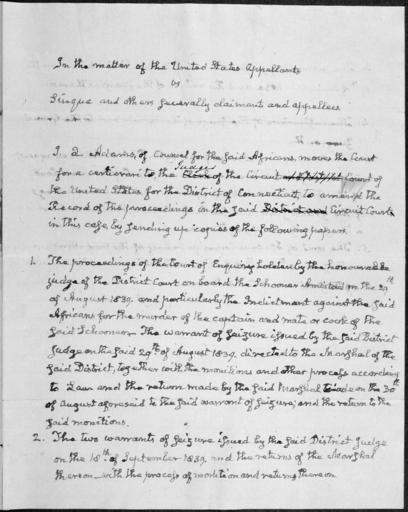 In the matter of the United States Appellants
vs
Sinque and others Generally claimants and appellees
I. 2 Adams, of Counsel for the said Africans, moves the Court
for a certiorari to, the Judges Clerk of the Circuit Court of
the United States for the District of Connecticut, to amend the
Record of the proceedings in the said District and Circuit Courts
in this case, by sending up copies of the following papers
1. The proceedings of the Court of Enquiry holden by the honourable
judge of the District Court on board the Schooner Amistad on the 29th
of August 1839. and particularly the Indictment against the said
Africans for the murder of the captain and mate or cook of the
said Schooner. The warrant of seizure issued by the said District
Judge on the said 29th of August 1839. directed to the Marshal of the
said District, together with the monitions and other process according
to Law and the return made by the said Marshal on the 30th
of August aforesaid to the said warrant of seizure; and the return to the
said monitions.
2. The two warrants of seizure issued by the said District Judge
on the 18th of September 1839. and the returns of the Marshal
thereon with the process of monition and returns thereon